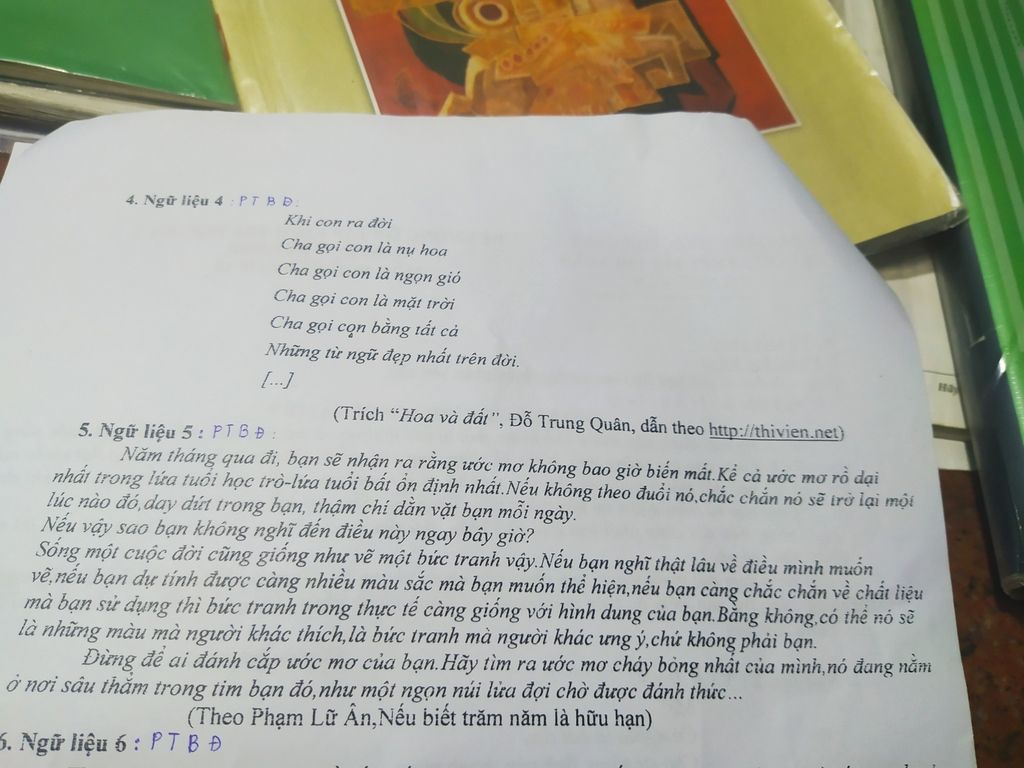 4. Ngữ liệu 4 : PTBĐ:
Khi con ra đời
Cha gọi con là nụ hoa
Cha gọi con là ngọn gió
Cha gọi con là mặt trời
Cha gọi con bằng tất cả
Những từ ngữ đẹp nhất trên đời.
[...]
(Trích “Hoa và đất”, Đỗ Trung Quân, dẫn theo http://thivien.net)
5. Ngữ liệu 5 : PTBĐ:
Năm tháng qua đi, bạn sẽ nhận ra rằng ước mơ không bao giờ biến mất.Kể cả ước mơ rồ dại
nhất trong lứa tuổi học trò-lứa tuổi bất ổn định nhất.Nếu không theo đuổi nó,chắc chắn nó sẽ trở lại một
lúc nào đó,day dứt trong bạn, thậm chí dằn vặt bạn mỗi ngày.
Nếu vậy sao bạn không nghĩ đến điều này ngay bây giờ?
Sống một cuộc đời cũng giống như vẽ một bức tranh vậy.Nếu bạn nghĩ thật lâu về điều mình muốn
vẽ,nếu bạn dự tính được càng nhiều màu sắc mà bạn muốn thể hiện,nếu bạn càng chắc chắn về chất liệu
mà bạn sử dụng thì bức tranh trong thực tế càng giống với hình dung của bạn.Bằng không,có thể nó sẽ
là những màu mà người khác thích,là bức tranh mà người khác ưng ý,chứ không phải bạn.
Đừng để ai đánh cắp ước mơ của bạn.Hãy tìm ra ước mơ cháy bỏng nhất của mình,nó đang nằm
ở nơi sâu thẳm trong tim bạn đó,như một ngọn núi lửa đợi chờ được đánh thức...
(Theo Phạm Lữ Ân,Nếu biết trăm năm là hữu hạn)
6. Ngữ liệu 6 : PTBĐ